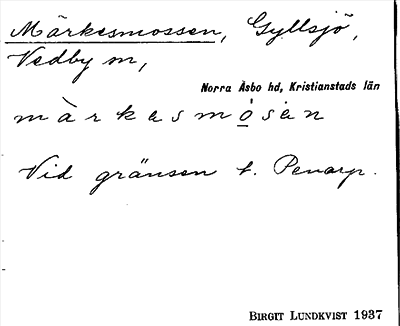 Märkesmossen, Gyllsjö,
Vedby sn,
Norra Åsbo hd, Kristianstads län
màrkesmȯ̲sèn
Vid gränsen t. Penarp.
BIRGIT LUNDKVIST 1937